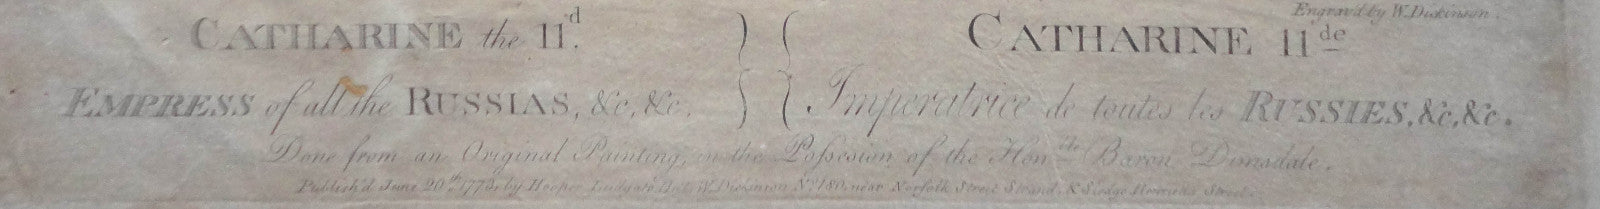 Engrav'd by W. Dickinson.
CATHARINE the 11.d
CATHARINE 11de
EMPRESS of all the RUSSIAS, &c, &c.
Imperatrice de toutes les RUSSIES, &c, &c.
Done from an Original Painting, in the Poſseſsion of the Honble Baron Dimsdale.
Publish'd June 20th 1773, by Hooper Ludgate Hill, W. Dickinson No. 180, near Norfolk Street Strand, & Sledge Henrietta Street.